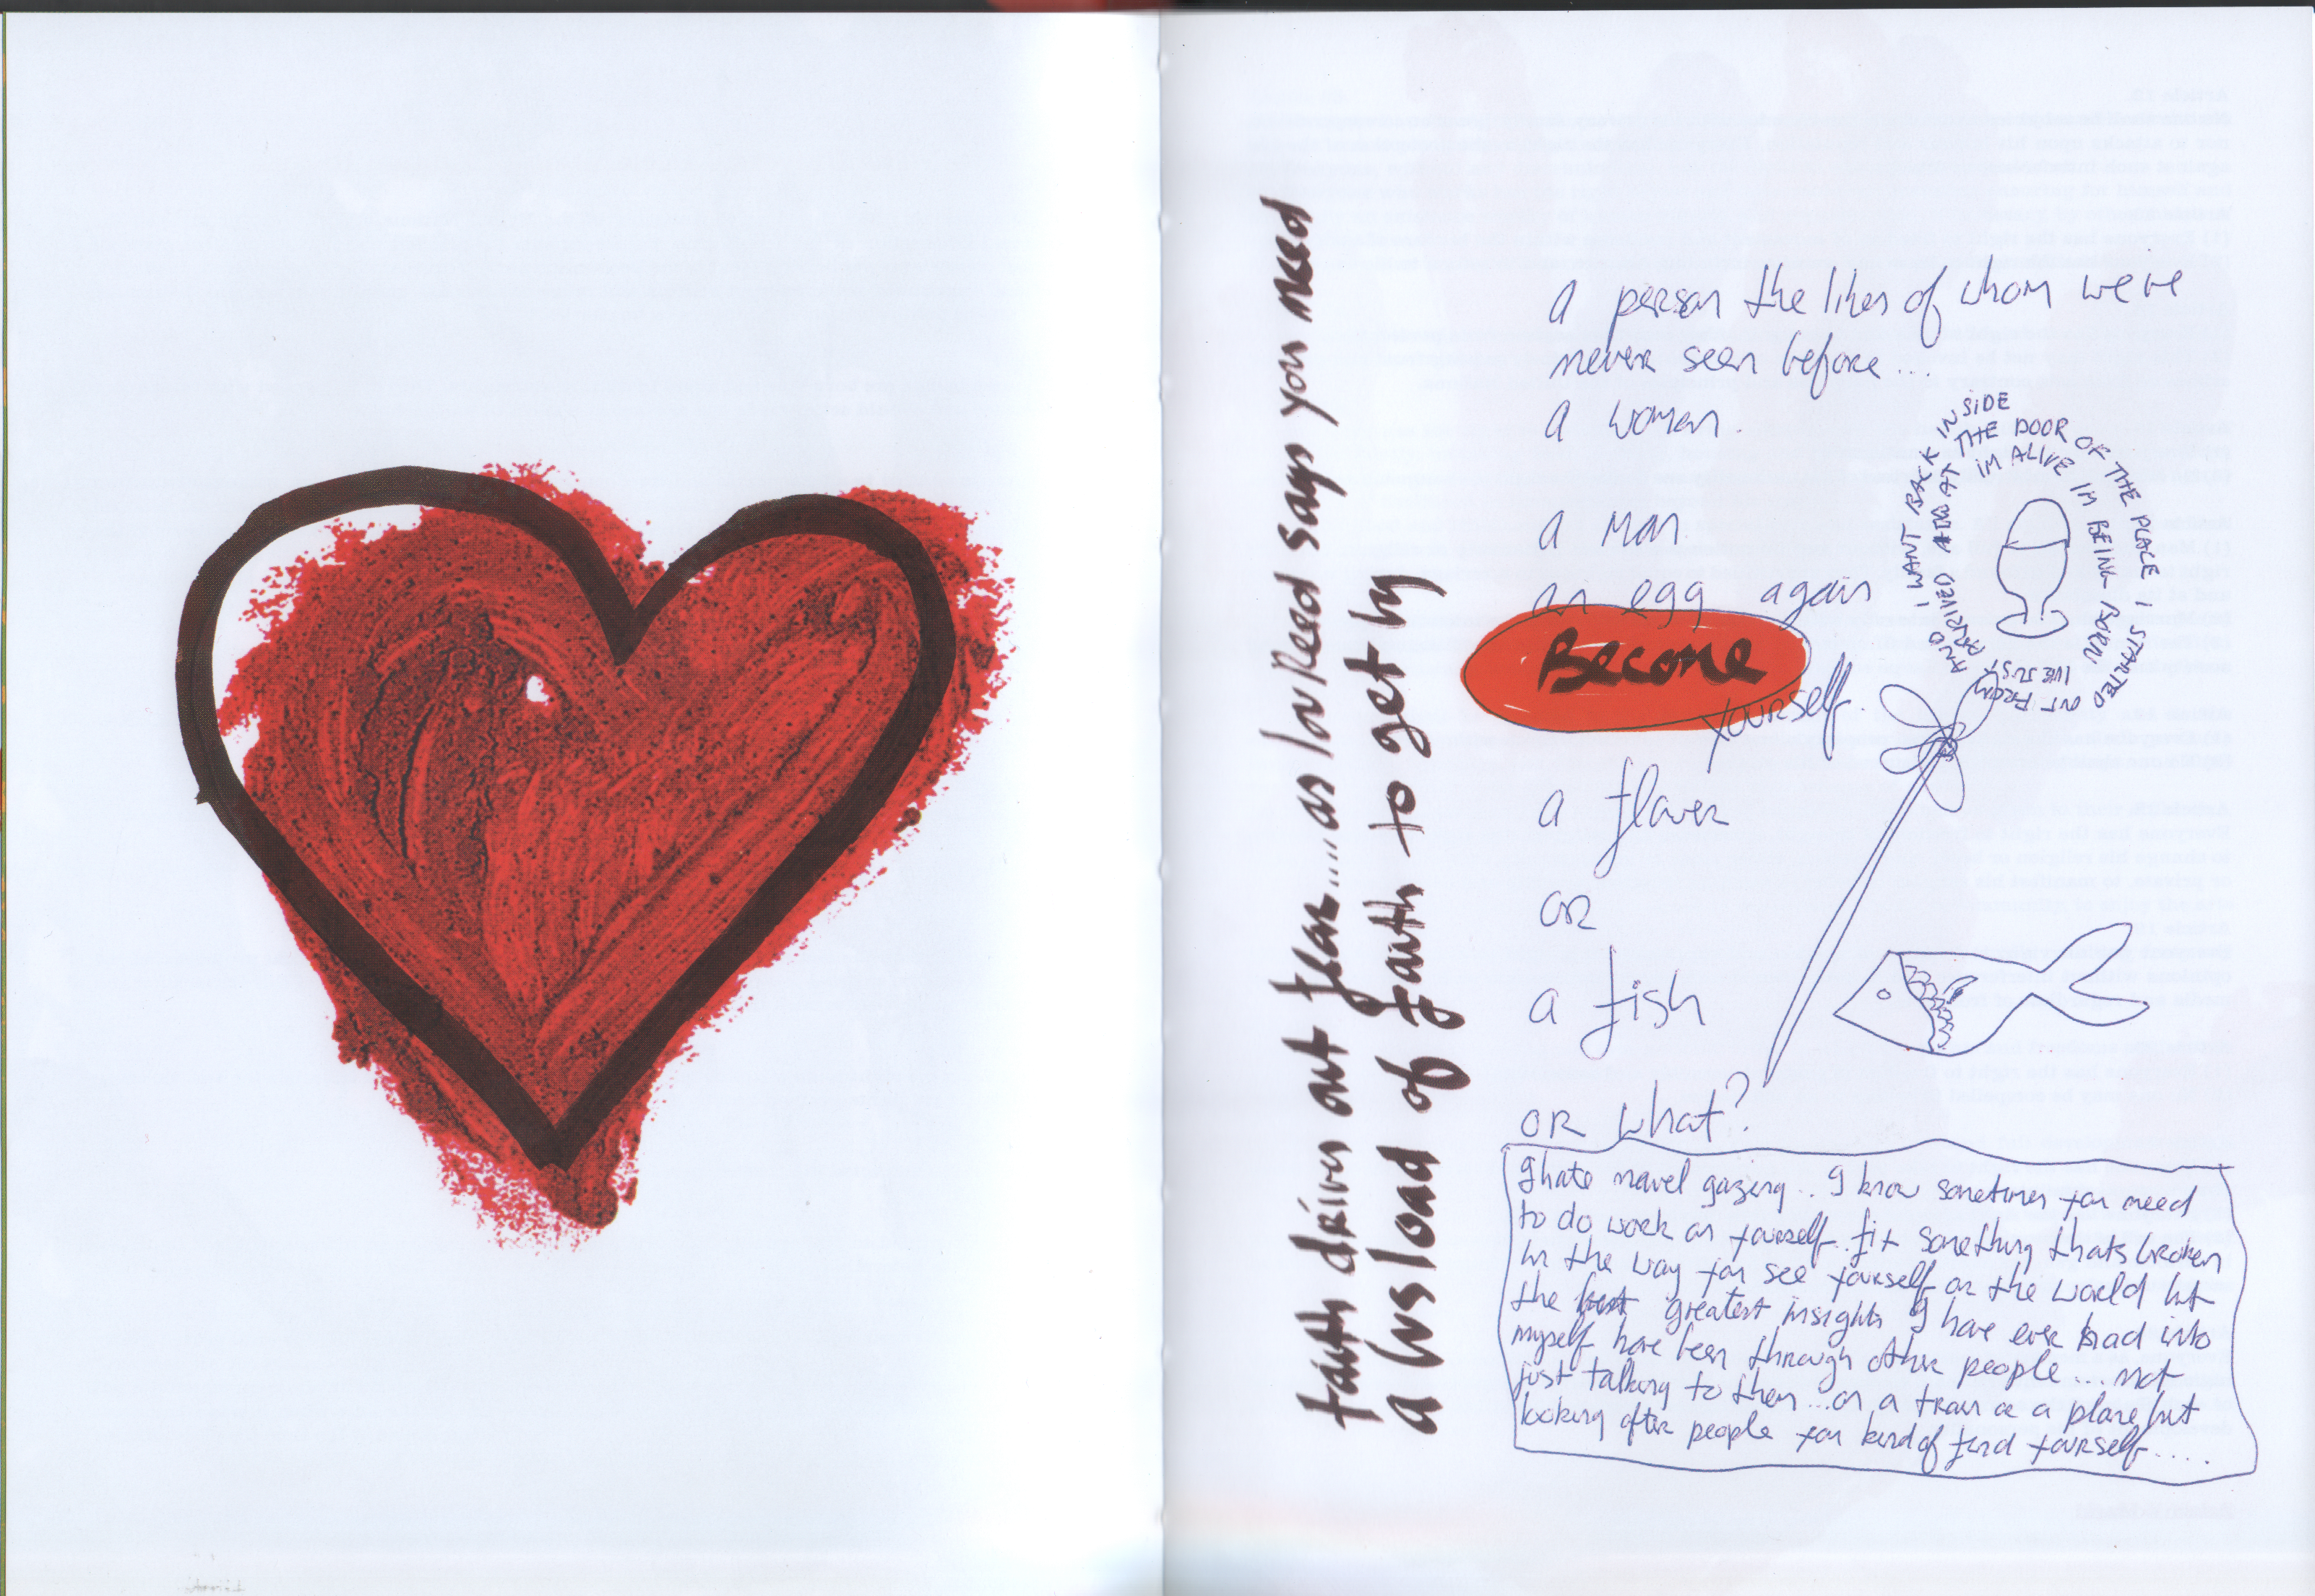 faith drives out fear....as lou Reed says you need
a busload of faith to get by
a person the likes of whom weve
never seen before...
a woman.
a man
an egg again
Become
yourself.
a flower
or
a fish
OR what?
AND I WANT BACK INSIDE
ARRIVED AT THE DOOR OF THE PLACE I STARTED
OUT FROM
IVE JUST
IM ALIVE IM BEING BORN
I hate navel gazing.. I know sometimes you need
to do work on yourself.. fix something thats broken
in the way you see yourself or the world but
the greatest insights I have ever had into
myself have been through other people... not
just talking to them...on a train or a plane but
looking after people you kind of find yourself....